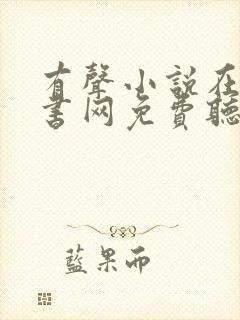 有聲小說在
書网免費聽
藍果而